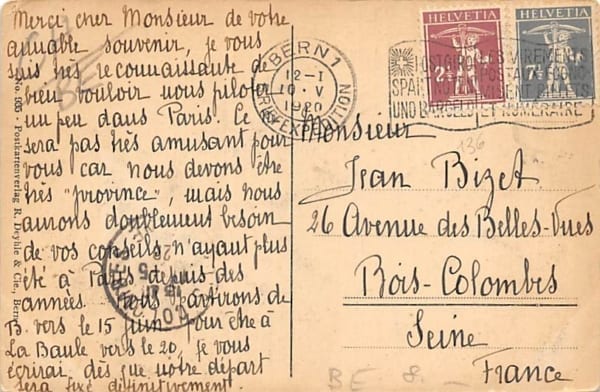 Merci cher Monsieur de votre
aimable souvenir, je vous
suis très reconnaissante de
bien vouloir nous piloter
un peu dans Paris. Ce
sera pas très amusant pour
vous car nous devons être
très "province", mais nous
aurons doublement besoin
de vos conseils n'ayant plus
été à Paris depuis des
années. Nous partirons de
B. vers le 15 juin pour être à
La Baule vers le 20, je vous
écrirai, dès que notre départ
sera fixé définitivement.
Postkartenverlag R. Deyhle & Cie., Bern
HELVETIA
HELVETIA
2½
7½
BERN 1
12-I
10. V
1920
BRIEFEXPEDITION
POSTGIRO LES VIREMENTS
UND BARGELD ET NUMÉRAIRE
136
Monsieur
Jean Bizet
26 Avenue des Belles-Vues
Bois-Colombes
Seine
France
BE 8.-